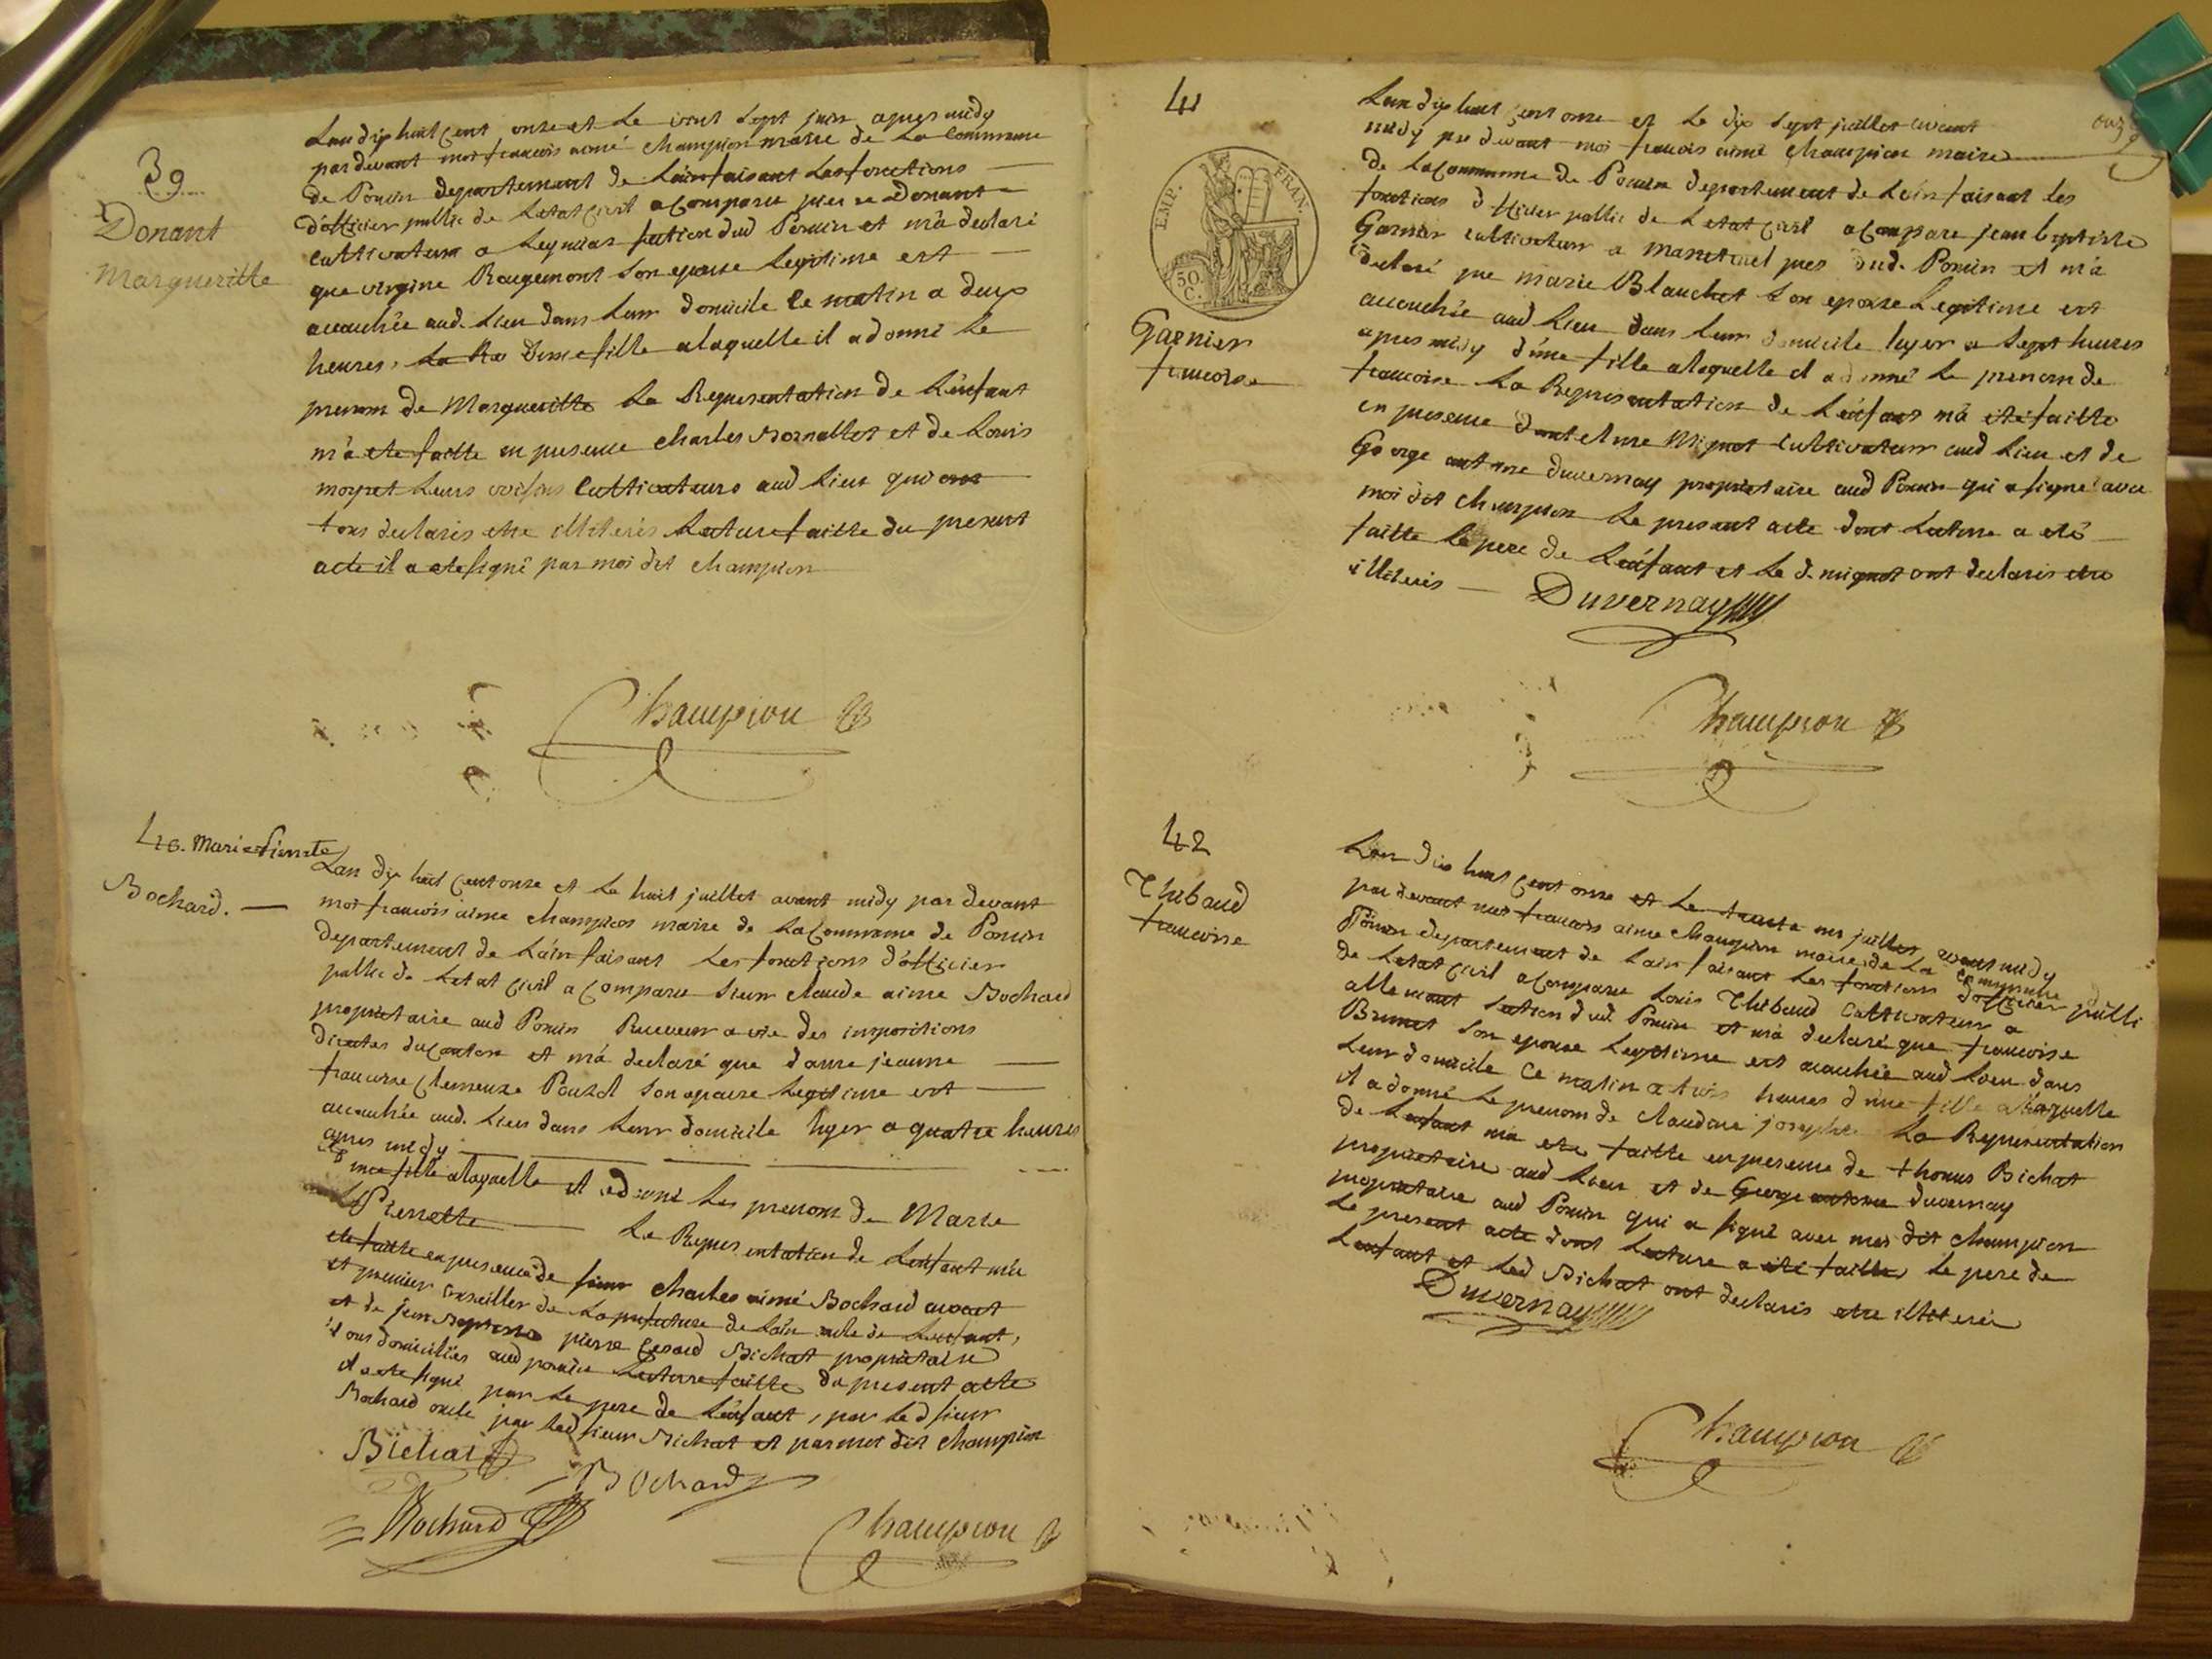 39
Donant
Margueritte
Lan dix huit cent onze et Le vint Sept juin apres midy
par devant moi francois aimé Champion maire de La commune
de Poncin departement de Lain faisant Les fonctions
d'officier public de Letat Civil a Comparu pierre Donant
cultivateur a Leymiat section dud Poncin et m'a declaré
que virgine Rougemont Son epouse Legitime est
accouchée aud. Lieu dans Leur domicile ce matin a deux
heures, La Re D'une fille a laquelle il a donné Le
prenom de Margueritte La Representation de L'enfant
m'a ete faitte en presence Charles Bornallet et de Louis
moyret Leurs voisins Cultivateurs aud Lieu qui ont
tous declarés etre illiterés Lecture faitte du present
acte il a ete signé par moi dit Champion
Champion
40. Marie Pierrette
Bochard.
Lan dix huit Cent onze et Le huit juillet avant midy par devant
moi francois aime Champion maire de La Commune de Poncin
departement de L'ain faisant Les fonctions d'officier
public de Letat Civil a Comparu Sieur Claude aime Bochard
proprietaire aud Poncin Receveur a vie des impositions
directes du Canton et m'a declaré que dame jeanne
francoise Clemence Pouzol Son epouse Legitime est
accouchée aud. Lieu dans Leur domicile hyer a quatre heures
apres midy
D'une fille a laquelle il a donné Les prenom de Marie
Pierrette La Representation de Lenfant m'a
ete faitte en presence de sieur Charles aimé Bochard avocat
et premier Conseiller de La prefecture de Lain oncle de Lenfant,
et de jean Baptiste pierre Cesard Bichat proprietaire
tous domiciliés aud poncin Lecture faitte du present acte
il a ete signé par Le pere de L'enfant, par Led sieur
Bochard oncle par Led sieur Bichat et par moi dit Champion
Bichat
Bochard
Bochard
Champion
41
onz
EMP. FRAN.
50. C.
Garnier
francoise
Lan dix huit Cent onze et Le dix Sept juillet avant
midy par devant moi francois aimé Champion maire
de La Commune de Poncin departement de L'ain faisant les
fonctions d'officier public de Letat Civil a Comparu jean baptiste
Garnier cultivateur a pres dud. Poncin et m'a
declaré que marie Blanchet Son epouse Legitime est
accouchée aud Lieu dans Leur domicile hyer a Sept heures
apres midy d'une fille a laquelle il a donné Le prenom de
francoise La Representation de L'enfant m'a ete faitte
en presence d'antelme Mignot Cultivateur aud Lieu et de
George antoine duvernay proprietaire aud Poncin qui a signé avec
moi dit Champion Le present acte dont Lecture a eté
faitte Le pere de L'enfant et Le d. mignot ont declarés etre
illiterés Duvernay
Champion
42
Thibaud
francoise
Lan dix huit Cent onze et Le trente un juillet avant midy
par devant moi francois aime Champion maire de La Commune
Poncin departement de Lain faisant Les fonctions d'officier publi
de Letat Civil a Comparu Louis Thibaud Cultivateur a
allemant Section dud. Poncin et m'a declaré que francoise
Brunet Son epouse Legitime est accouchée aud Lieu dans
Leur domicile Ce matin a trois heures d'une fille a laquelle
il a donné Le prenom de Claudine josephe La Representation
de Lenfant ma ete faitte en presence de thomas Bichat
proprietaire aud Lieu et de George antoine duvernay
proprietaire aud Poncin qui a signé avec moi dit Champion
Le present acte dont Lecture a été faitte Le pere de
Lenfant et Led Bichat ont declarés etre illiterés
Duvernay
Champion